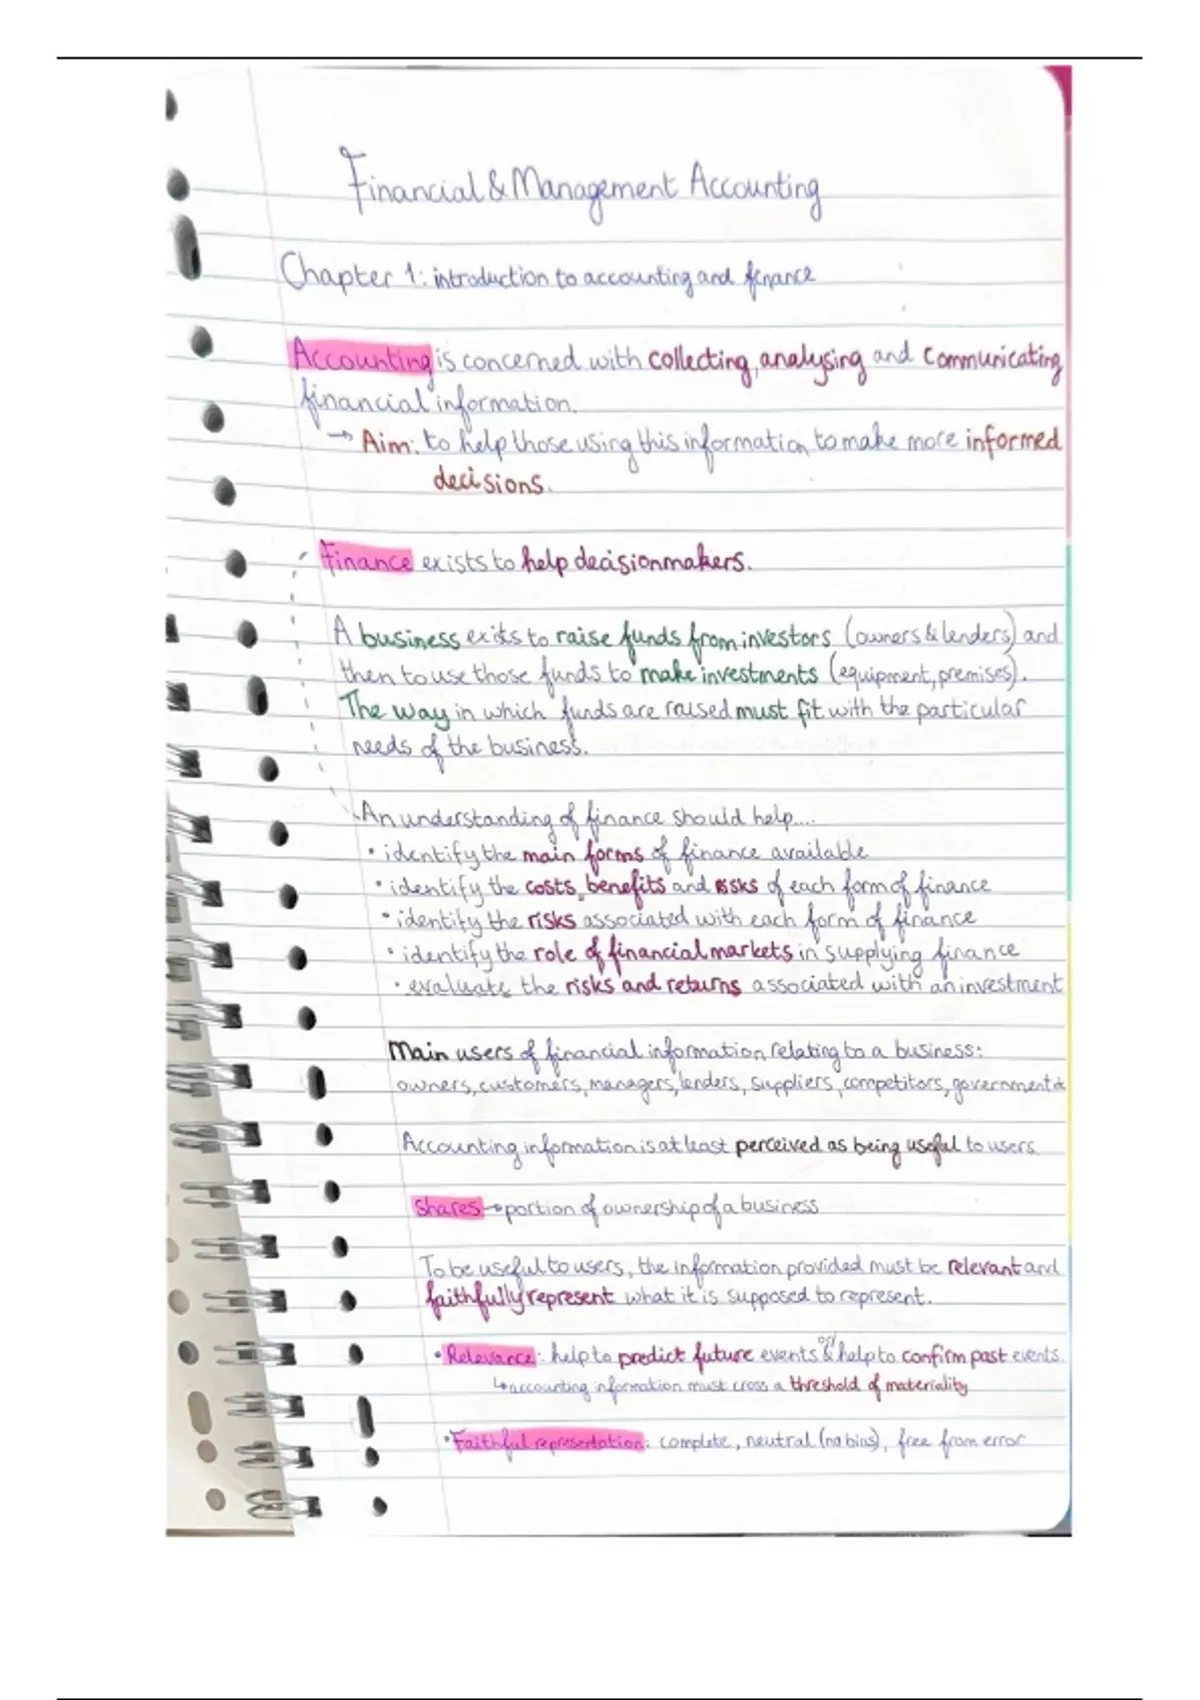 Financial & Management Accounting
Chapter 1: introduction to accounting and finance
Accounting is concerned with collecting, analysing and communicating
financial information.
→ Aim: to help those using this information to make more informed
decisions.
Finance exists to help decisionmakers.
A business exists to raise funds from investors (owners & lenders) and
then to use those funds to make investments (equipment, premises).
The way in which funds are raised must fit with the particular
needs of the business.
An understanding of finance should help....
• identify the main forms of finance available
• identify the costs, benefits and risks of each form of finance
• identify the risks associated with each form of finance
• identify the role of financial markets in supplying finance
• evaluate the risks and returns associated with an investment
Main users of financial information relating to a business:
owners, customers, managers, lenders, suppliers, competitors, government
Accounting information is at least perceived as being useful to users
Shares → portion of ownership of a business
To be useful to users, the information provided must be relevant and
faithfully represent what it is supposed to represent.
• Relevance: help to predict future events & help to confirm past events.
↳ accounting information must cross a threshold of materiality
• Faithful representation: complete, neutral (no bias), free from error